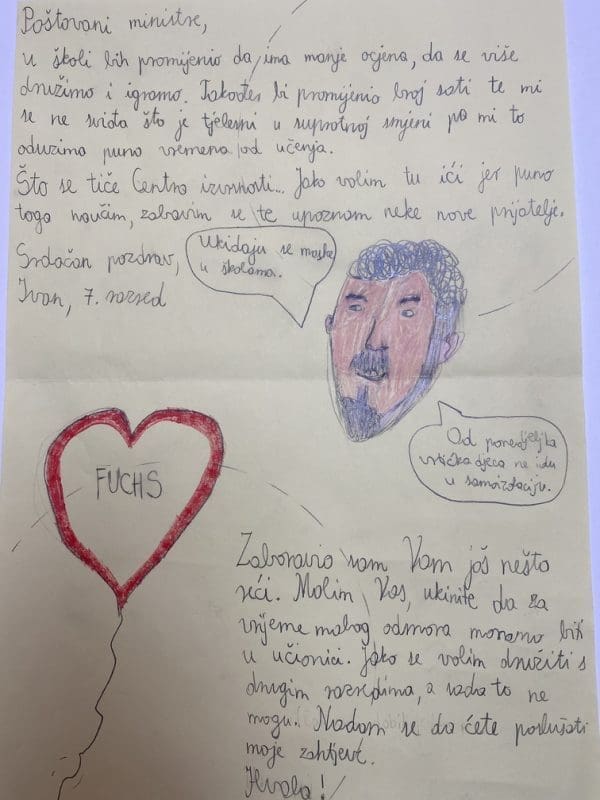 Poštovani ministre,
u školi bih promijenio da ima manje ocjena, da se više
družimo i igramo. Također bi promijenio broj sati te mi
se ne sviđa što je tjelesni u suprotnoj smjeni pa mi to
oduzima puno vremena od učenja.
Što se tiče Centra izvrsnosti... Jako volim tu ići jer puno
toga naučim, zabavim se te upoznam neke nove prijatelje.
Srdačan pozdrav,
Ivan, 7. razred
Ukidaju se maske
u školama.
Od ponedjeljka
vrtićka djeca ne idu
u samoizolaciju.
FUCHS
Zaboravio sam Vam još nešto
reći. Molim Vas, ukinite da za
vrijeme malog odmora moramo biti
u učionici. Jako se volim družiti s
drugim razredima, a sada to ne
mogu. Nadam se da ćete poslušati
moje zahtjeve.
Hvala!